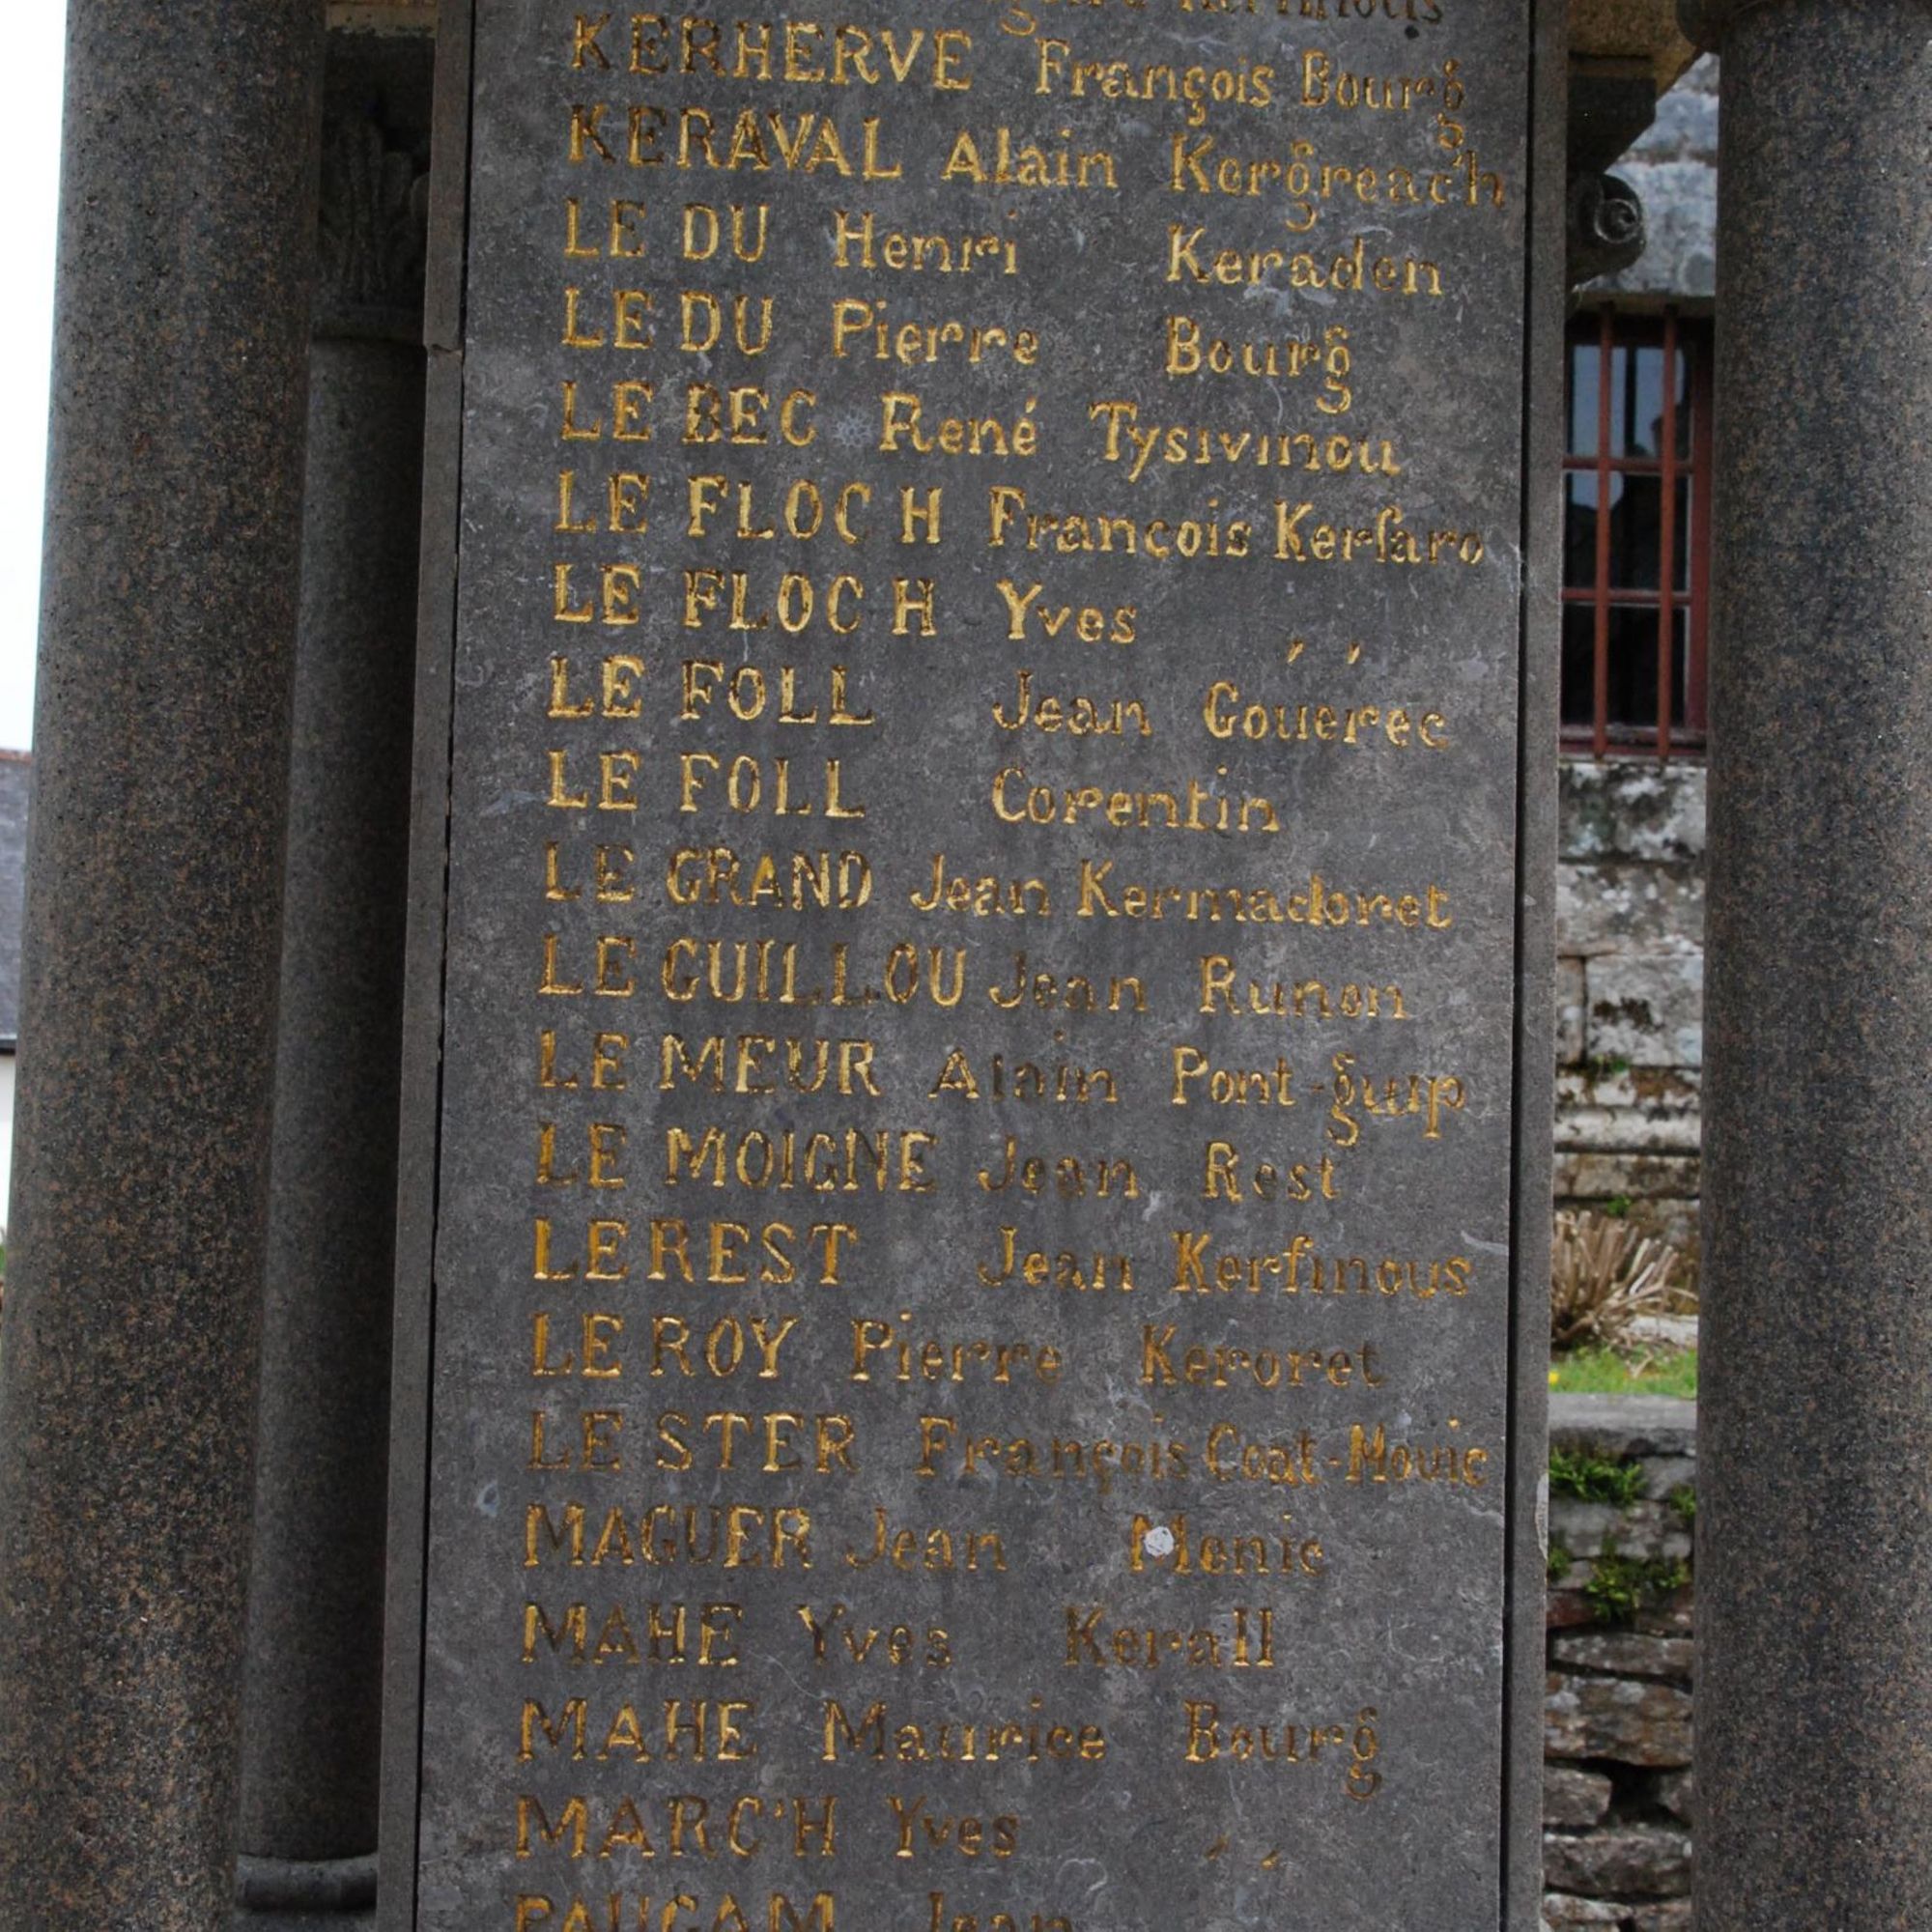 KERHERVE François Bourg
KERAVAL Alain Kergreac'h
LE DU Henri Keraden
LE DU Pierre Bourg
LE BEC René Tysivinou
LE FLOCH François Kerfaro
LE FLOCH Yves , ,
LE FOLL Jean Gouerec
LE FOLL Corentin
LE GRAND Jean Kermadoret
LE GUILLOU Jean Runen
LE MEUR Alain Pont-guip
LE MOIGNE Jean Rest
LE REST Jean Kerfinous
LE ROY Pierre Keroret
LE STER François Coat-Mouic
MAGUER Jean Menic
MAHE Yves Kerall
MAHE Maurice Bourg
MARC'H Yves , ,
PAUGAM Jean